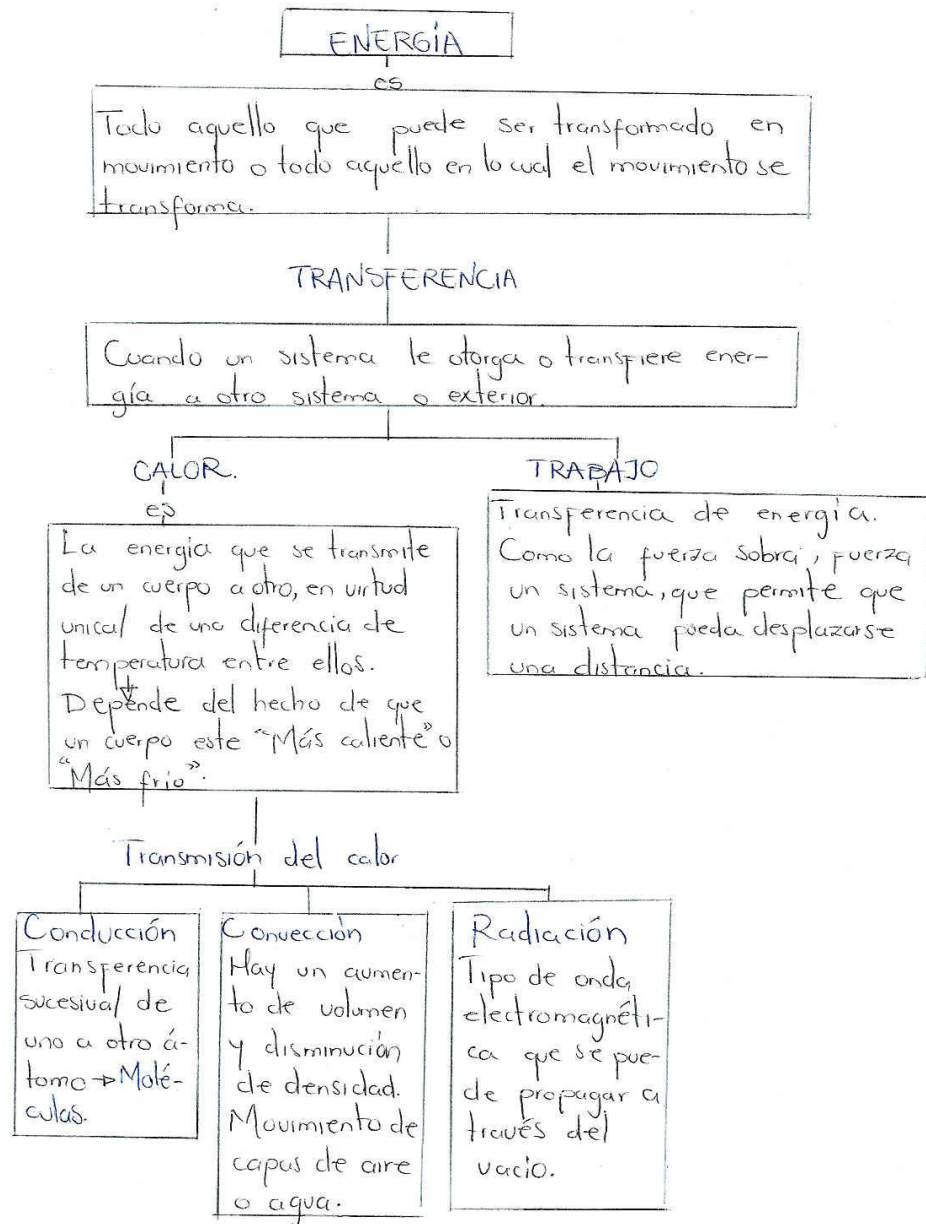 ENERGÍA
es
Todo aquello que puede ser transformado en
movimiento o todo aquello en lo cual el movimiento se
transforma.
TRANSFERENCIA
Cuando un sistema le otorga o transfiere ener-
gía a otro sistema o exterior.
CALOR.
es
La energia que se transmite
de un cuerpo a otro, en virtud
unical de una diferencia de
temperatura entre ellos.
Depende del hecho de que
un cuerpo este "Más caliente" o
"Más frio".
TRABAJO
Transferencia de energía.
Como la fuerza sobra, fuerza
un sistema, que permite que
un sistema pueda desplazarse
una distancia.
Transmisión del calor
Conducción
Transferencia
sucesival de
uno a otro á-
tomo → Molé-
culas.
Convección
Hay un aumen-
to de volumen
y disminución
de densidad.
Movimiento de
capas de aire
o agua.
Radiación
Tipo de onda
electromagnéti-
ca que se pue-
de propagar a
través del
vacio.